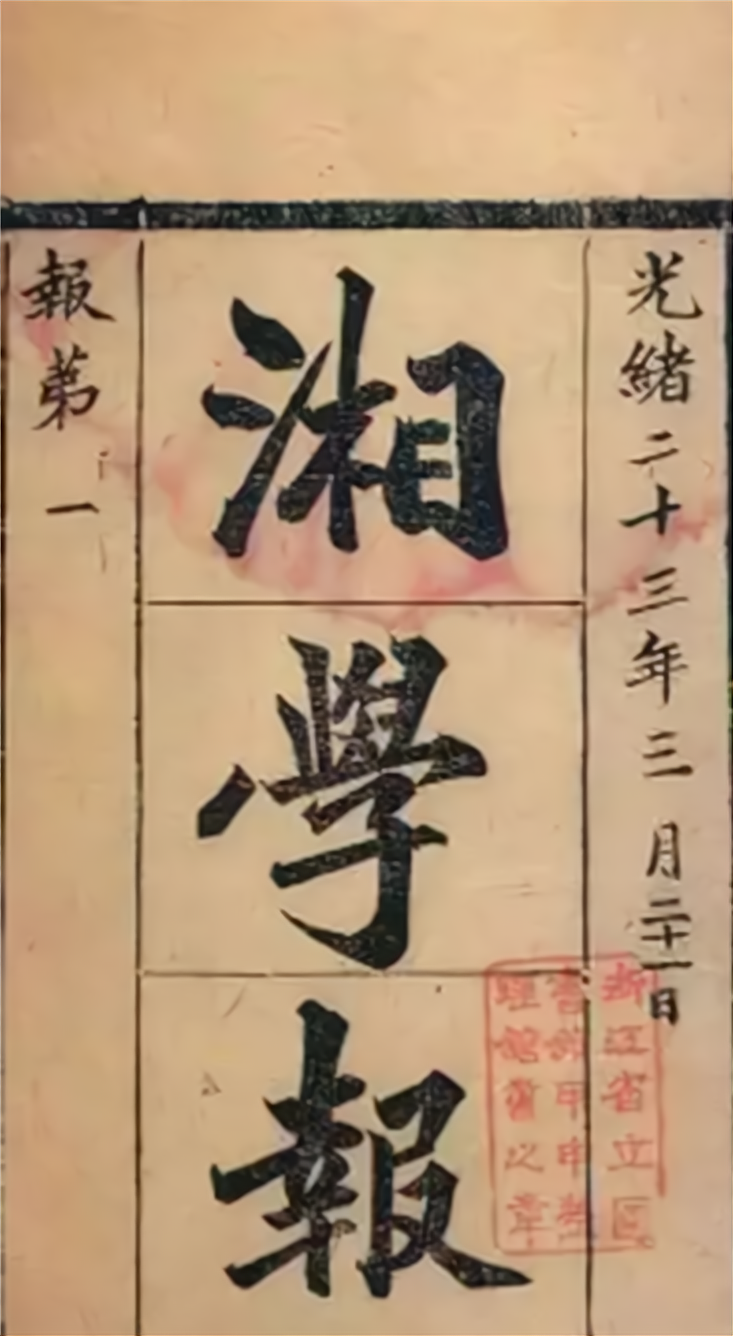 光緒二十三年三月二十一日
湘學報
報第一
浙江省立圖
書館甲申整
理之章